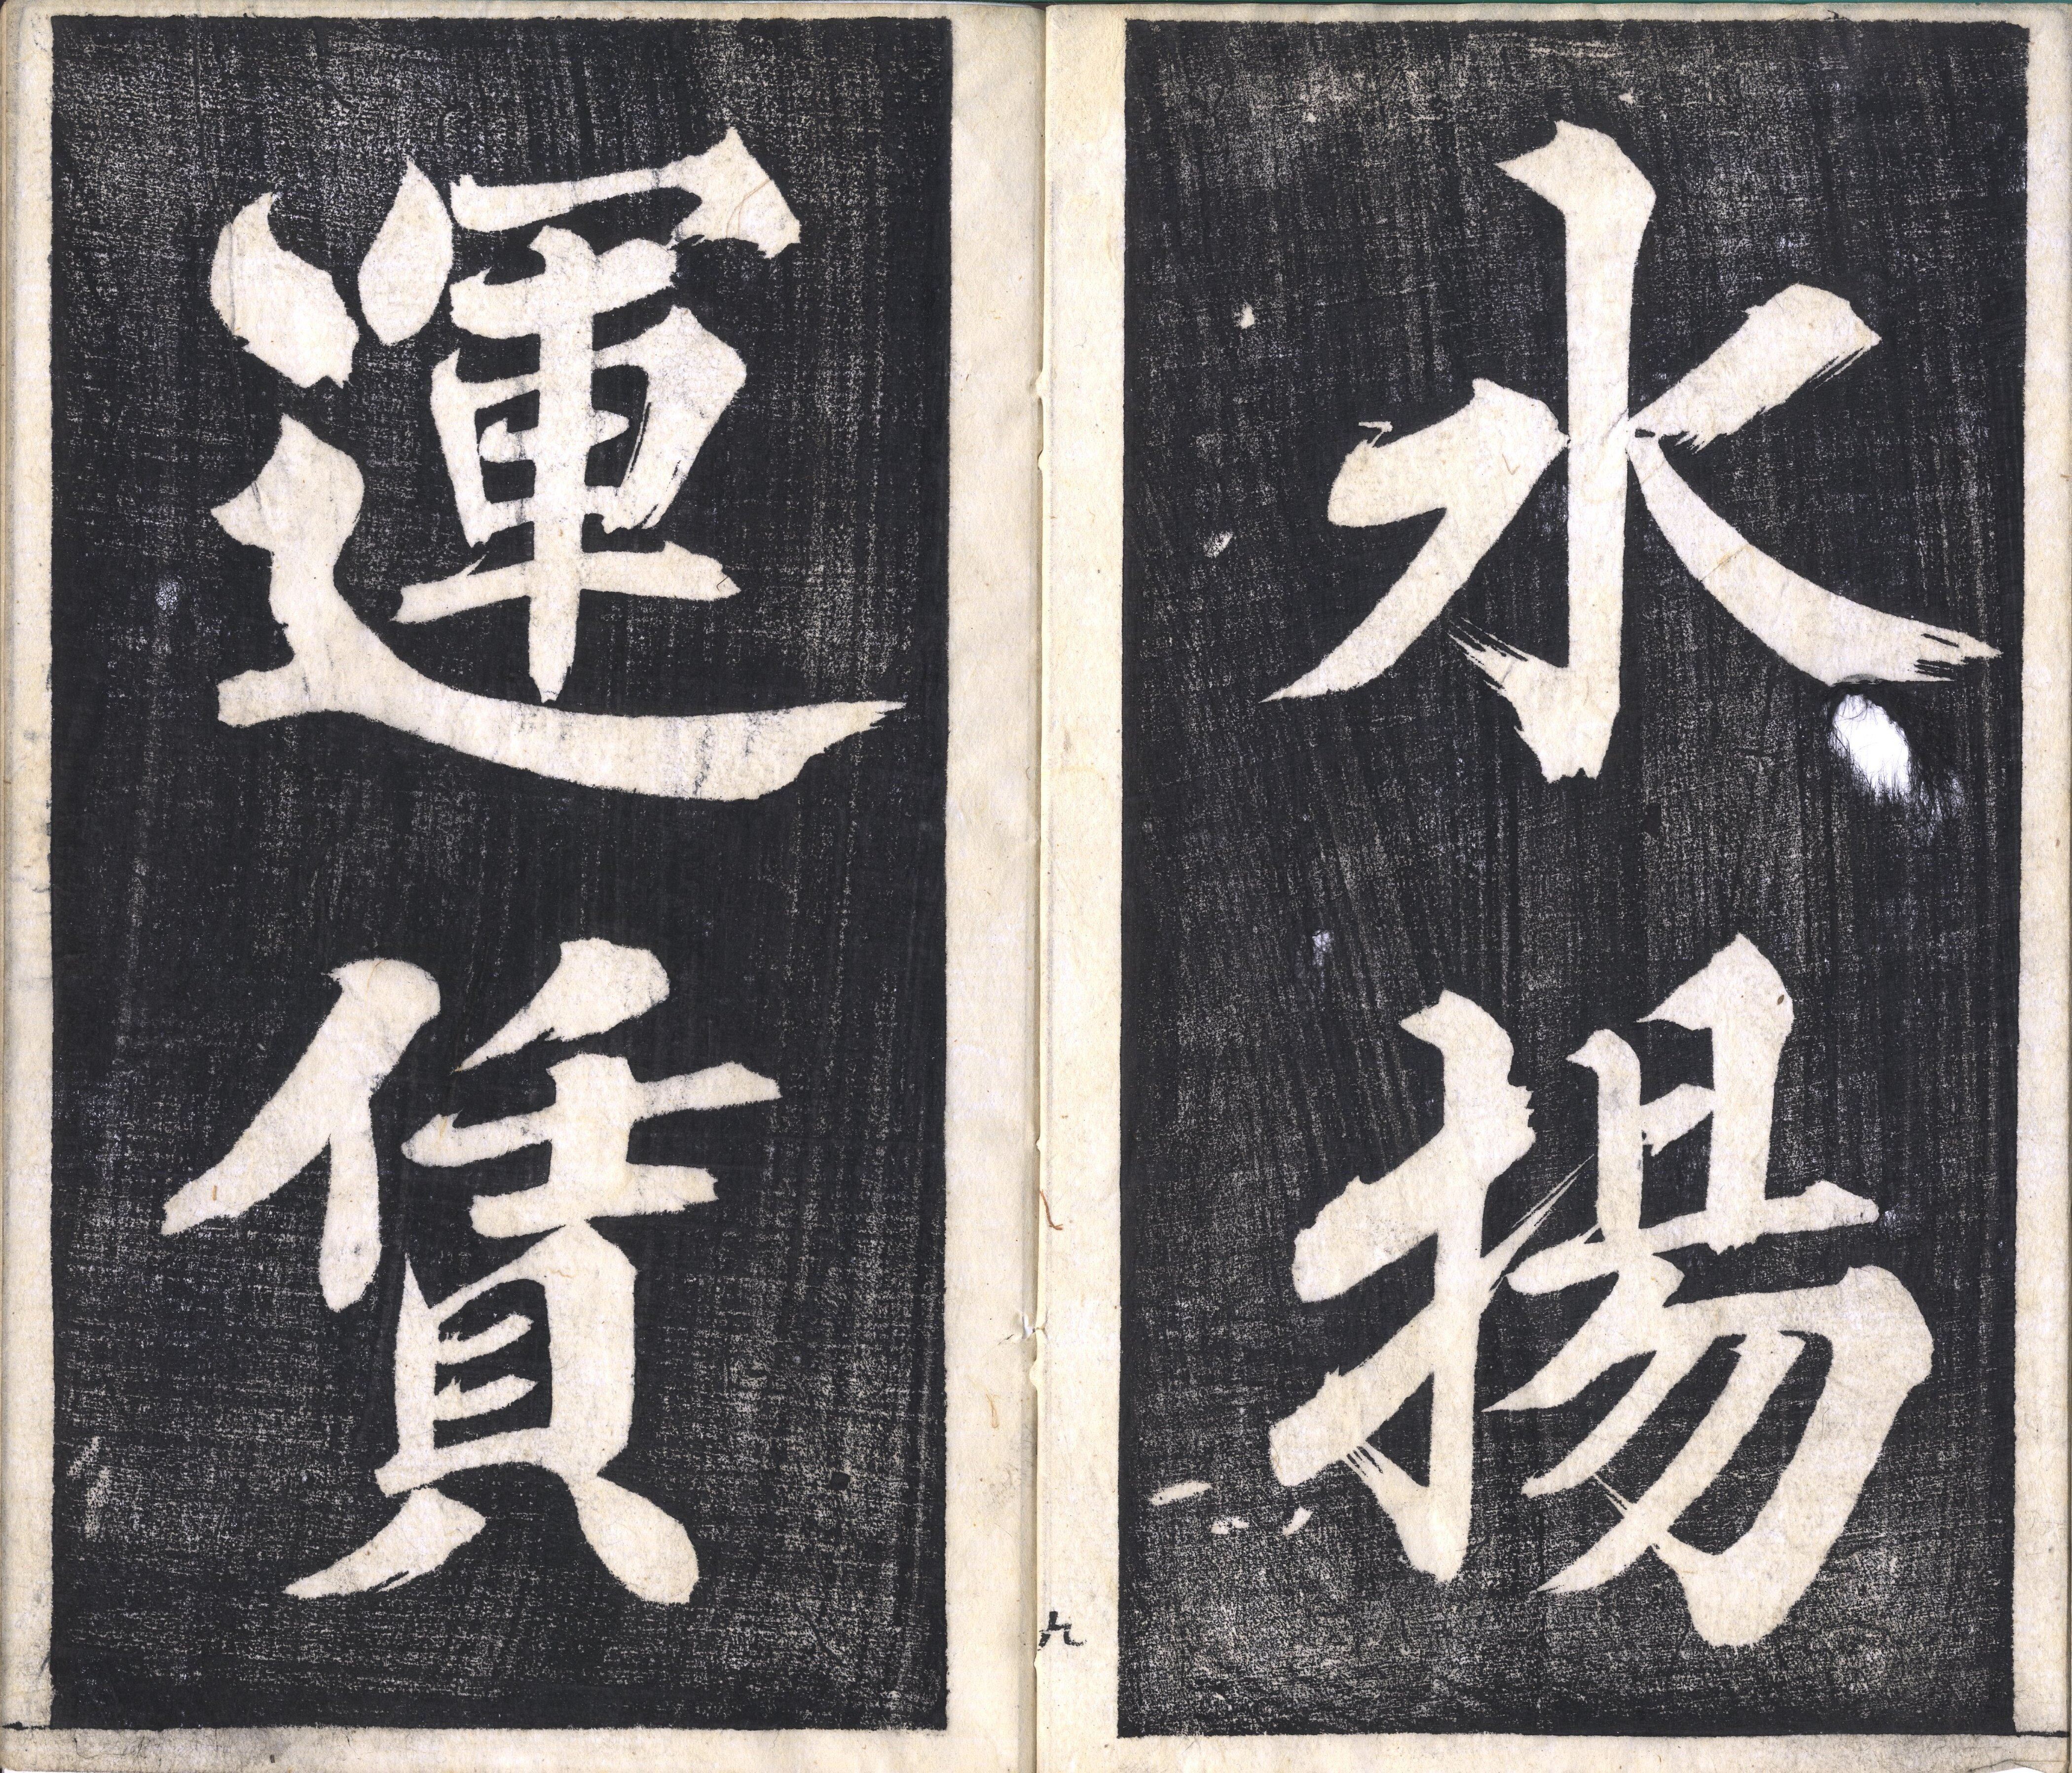 水揚
運賃
九